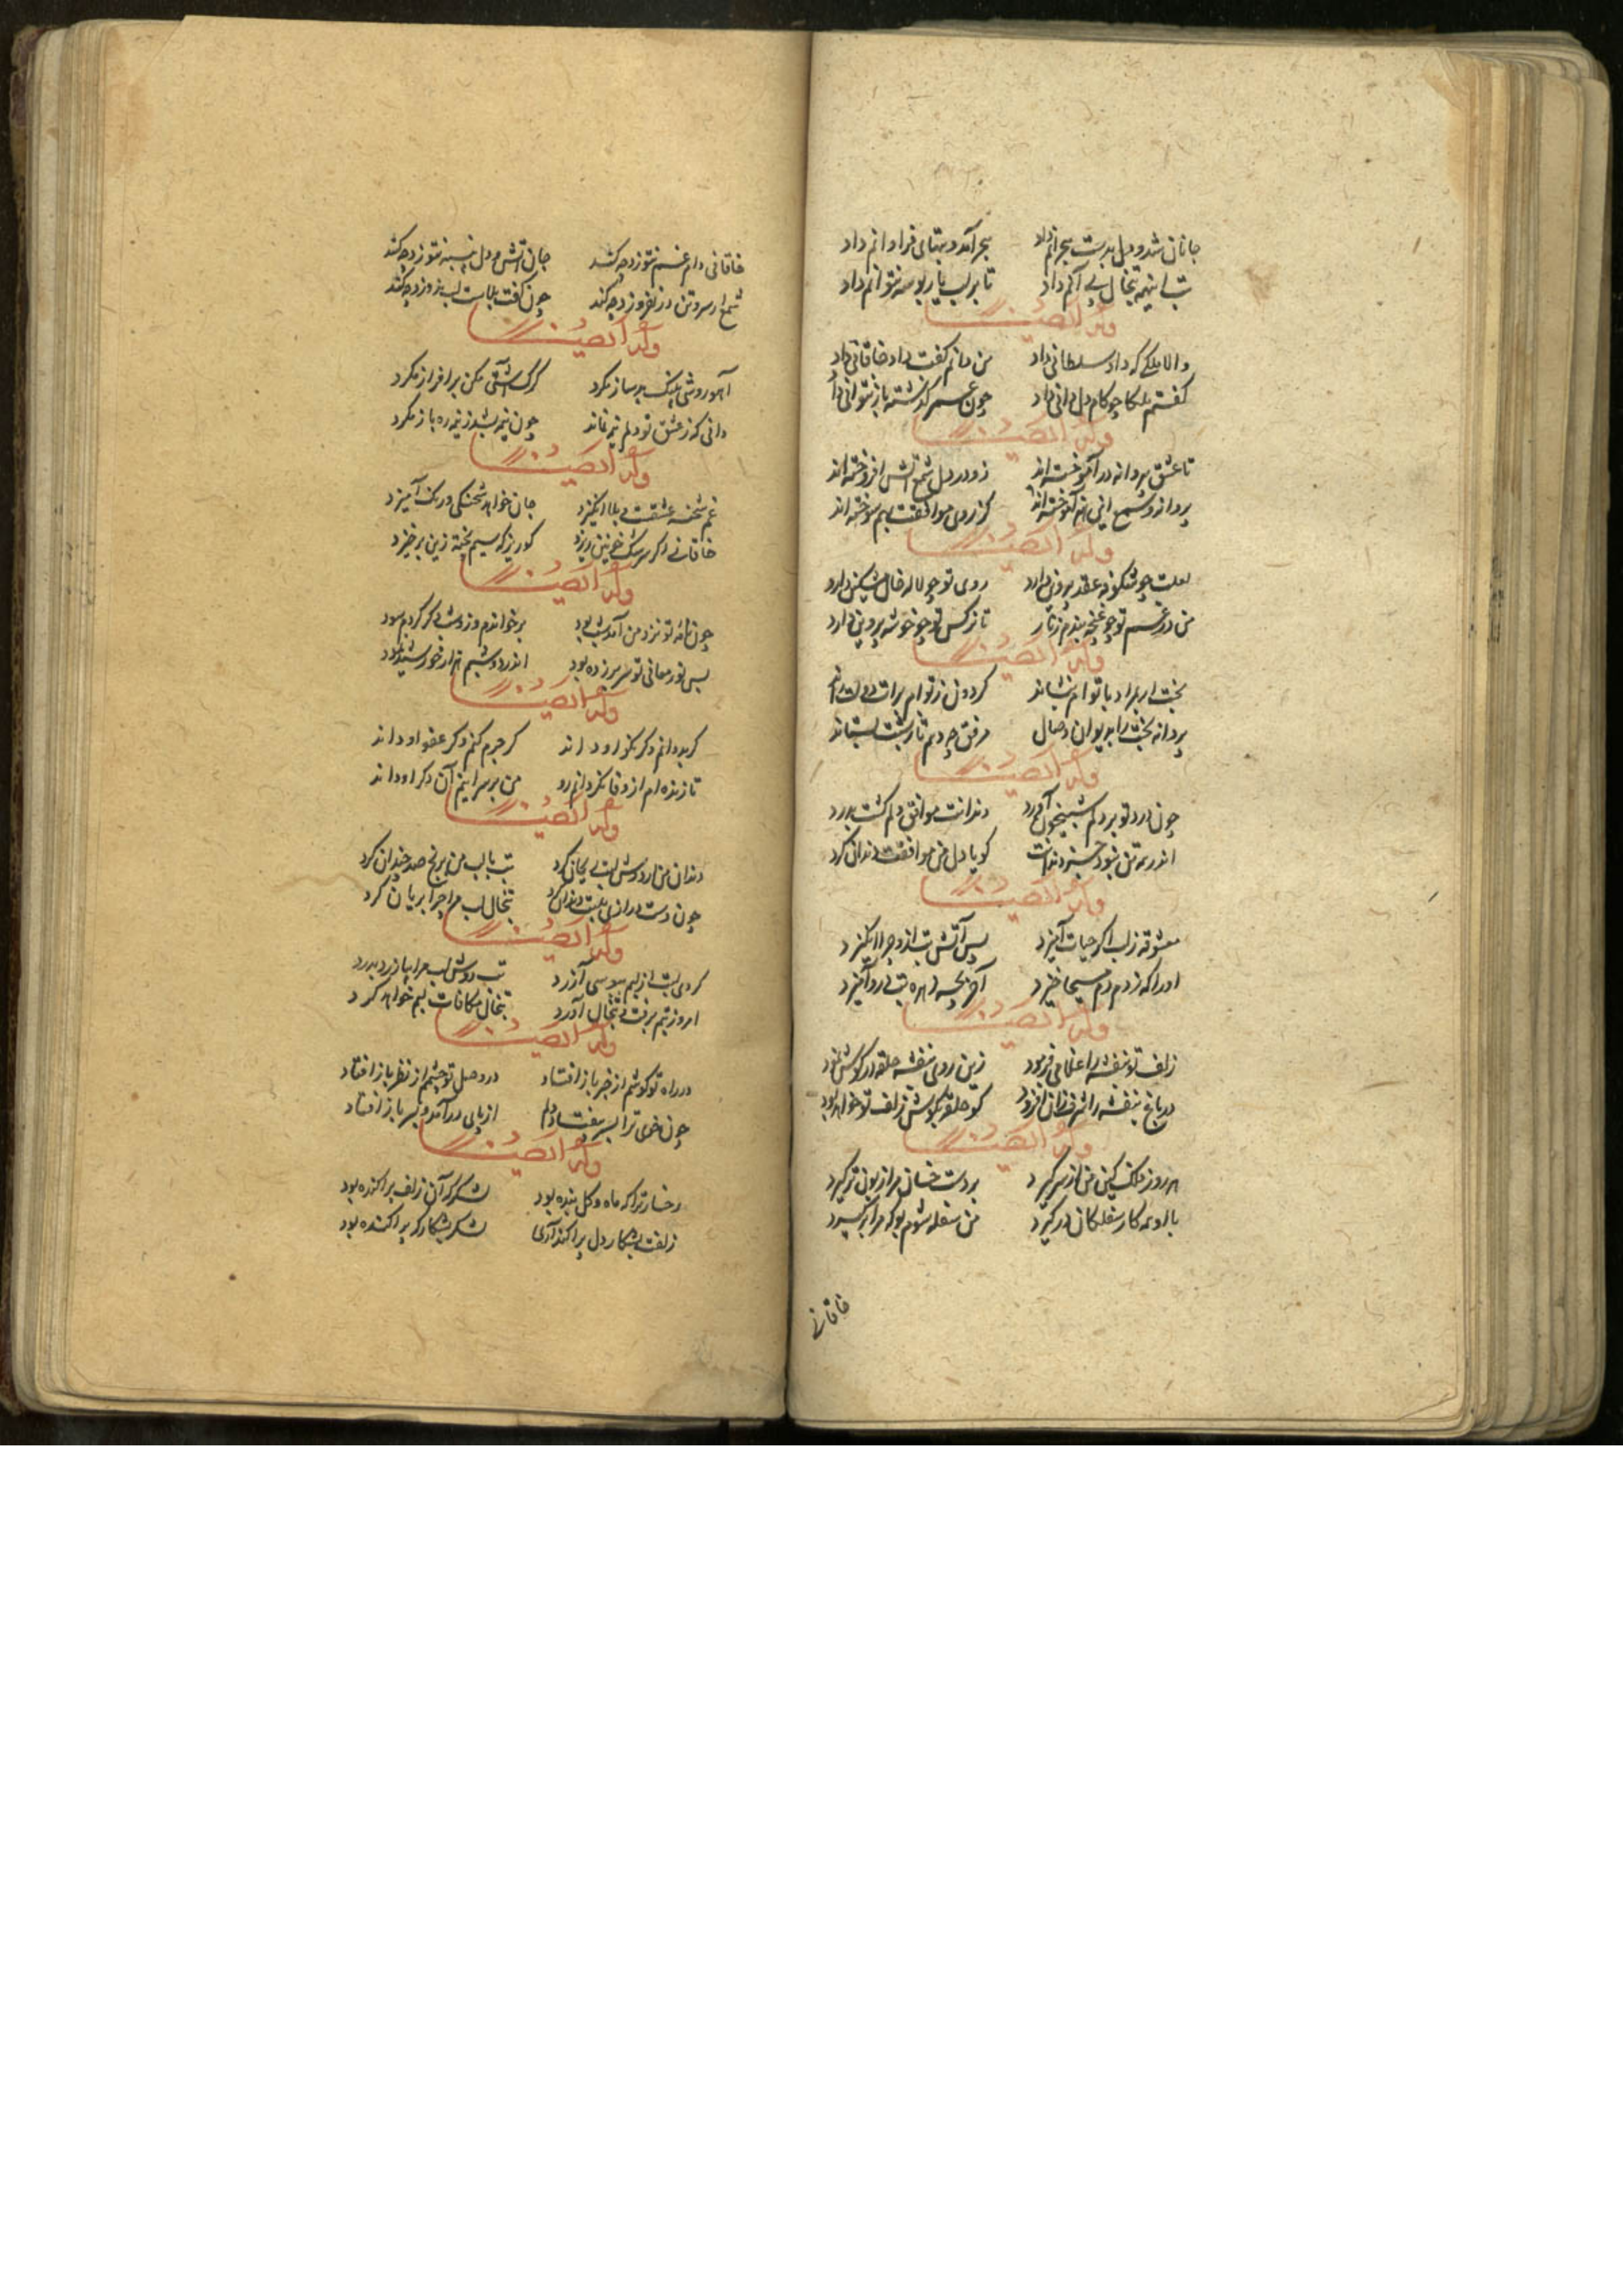 جانان شد و دل بدست هجرانم داد هجر آمد و تبهای فراوانم داد
تب اینهمه تبخال پی آنم داد تا بر لب یار بوسه نتوانم داد
وله ایضا
والا ملکی که داد سلطانی داد من دانم گفت داد خاقانی داد
گفتم ملکا چو کام دل دانی داد چون عمر گذشته باز نتوانی داد
وله ایضا
تا عشق به پروانه در آموخته اند زو در دل شمع آتش افروخته اند
پروانه و شمع این هنر آموخته اند کز روی موافقت بهم سوخته اند
وله ایضا
لعلت چو شکوفه عقد پروین دارد روی تو چو لاله خال مشکین دارد
من در غم تو چو غنچه بندم زنار تا نرگس تو چو خوشه پروین دارد
وله ایضا
بخت ار بمراد با توام بنشاند گردون ز توام برات دولت راند
پروانه بخت را بدیوان وصال مرفق چه دهم تا ز منت بستاند
وله ایضا
چون درد تو بر دلم شبیخون آورد دندانت موافق دلم گشت بدرد
اندر همه تن نبود جز دندانت کو با دل من موافقت داند کرد
وله ایضا
معشوقه ز لب اگر حیات آمیزد پس آتش تب ازو چرا انگیزد
او را که ز دم دم مسیحا خیزد آخر بچه زهره تب درو آمیزد
وله ایضا
زلف تو بنفشه را غلامی فرمود زین روی بنفشه حلقه در گوش نمود
در باغ بنفشه را شرف زان افزود کو حلقه بگوش زلف تو خواهد بود
وله ایضا
هر روز فلک کین من از سر گیرد بر دست خسان مرا زبون تر گیرد
با او همه کار سفلگان در گیرد من سفله شوم بو که مرا بر گیرد
خاقانی
خاقانی دام غم نتوزد چکند جان آتش و دل پنبه نتوزد چکند
شمع از سر و تن در نفروزد چکند چون گفت بلاست لب ندوزد چکند
وله ایضا
آهو روشی پلنگ بد ساز مکرد گرگ آشتی مکن بر افراز مکرد
دانی که ز عشق تو دلم نیم نماند چون نیم شد ز نیمه ره باز مکرد
وله ایضا
غم شحنه عشقست و بلا انگیزد جان خواهد شحنگی و رنگ آمیزد
خاقانی اگر سرشک خونین ریزد گو ریز که سیم شحنه زین برخیزد
وله ایضا
چون نامه تو نزد من آمد شب بود بر خواندم و زو شب دگر کردم سود
پس نور معانی تو سر بر زده بود اندر دو شبم هزار خورشید نمود
وله ایضا
گر بد دانم و گر نکو او داند گر جرم کنم و گر عفو او داند
تا زنده ام از وفا نگردانم رو من بر سر اینم آن دگر او داند
وله ایضا
دندان من ار دوش لبت بی جان کرد تب با لب من برنج صد چندان کرد
چون دست درازی بلبت دندان کرد تبخال لب مرا چرا بریان کرد
وله ایضا
کردی لبت از لبم ببوسی آزرد تب دوش لب مرا بیازرد بدرد
امروز تبم برفت و تبخال آورد تبخال مکافات لبم خواهد کرد
وله ایضا
در راه تو گوشم از خبر باز افتاد در وصل تو چشمم از نظر باز افتاد
چون خوی ترا بسر نیفتاد دلم از پای در آمد و بسر باز افتاد
وله ایضا
رخسار ترا که ماه و گل بنده بود لشکرگه آن زلف پراکنده بود
زلفت بشکار دل پراکند آری لشکر بشکارگه پراکنده بود